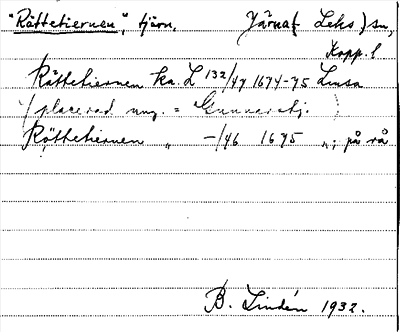 "Rättetiernen", tjärn. Järnaf Leks) sn,
Kopp. l
Rättetiernen ka. L 132/47 1674-75 Limsa
(placered ung. = Gunnarstj. )
Rättetiernen " -/46 1675 "; på rå
B. Lindén 1932.